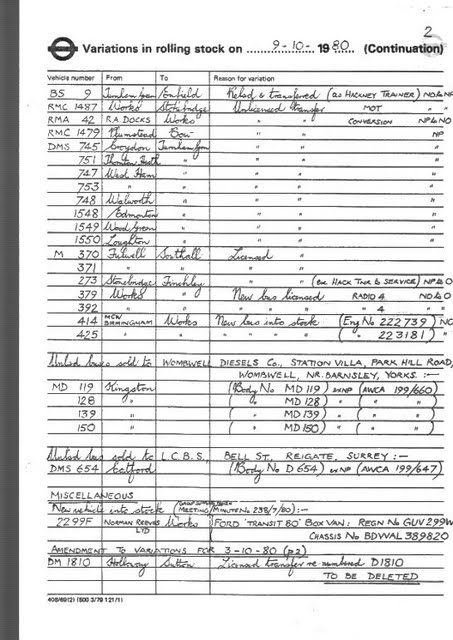 2
Variations in rolling stock on 9-10- 1980 (Continuation)
Vehicle number From To Reason for variation
BS 9 Turnham Green Enfield Relsd & transferred (as HACKNEY TRAINER) NO &
RMC 1487 Works Stonebridge Unlicensed transfer MOT " "
RMA 42 R.A. DOCKS Works " " CONVERSION NP & NO
RMC 1479 Plumstead Bow " " NP
DMS 745 Croydon Turnham Grn " " "
751 Thornton Heath " " " "
747 West Ham " " " "
753 " " " " "
748 Walworth " " " "
1548 Edmonton " " " "
1549 Wood Green " " " "
1550 Loughton " " " "
M 370 Fulwell Southall Licensed " "
371 " " " " "
273 Stonebridge Finchley " " (BUS HACK TNR & SERVICE) NP & O
379 Works " New bus licensed RADIO 4 NO & O
392 " " " " " 4 " "
414 MCW BIRMINGHAM Works New bus into stock (Eng No 222739) NO
425 " " " " " ( " 223181) "
Unlsd buses sold to WOMBWELL DIESELS Co., STATION VILLA, PARK HILL ROAD,
WOMBWELL, NR. BARNSLEY, YORKS. :—
MD 119 Kingston (Body No MD 119) ex NP (AWCA 199/660)
128 " ( " MD 128) " ( " " )
139 " ( " MD 139) " ( " " )
150 " ( " MD 150) " ( " " )
Unlsd bus sold to L.C.B.S., BELL ST, REIGATE, SURREY :—
DMS 654 Catford (Body No D 654) ex NP (AWCA 199/647)
MISCELLANEOUS
New vehicle into stock MEETING/MINUTE No 238/7/80) :—
2299F NORMAN REEVES LTD Works FORD 'TRANSIT 80' BOX VAN; REGN No GUV 299W
CHASSIS No BDVWAL 389820
AMENDMENT TO VARIATIONS FOR 3-10-80 (p2)
DM 1810 Holloway Sutton Licensed transfer re-numbered D1810
TO BE DELETED
408/69(2) (500 3/79 121/1)